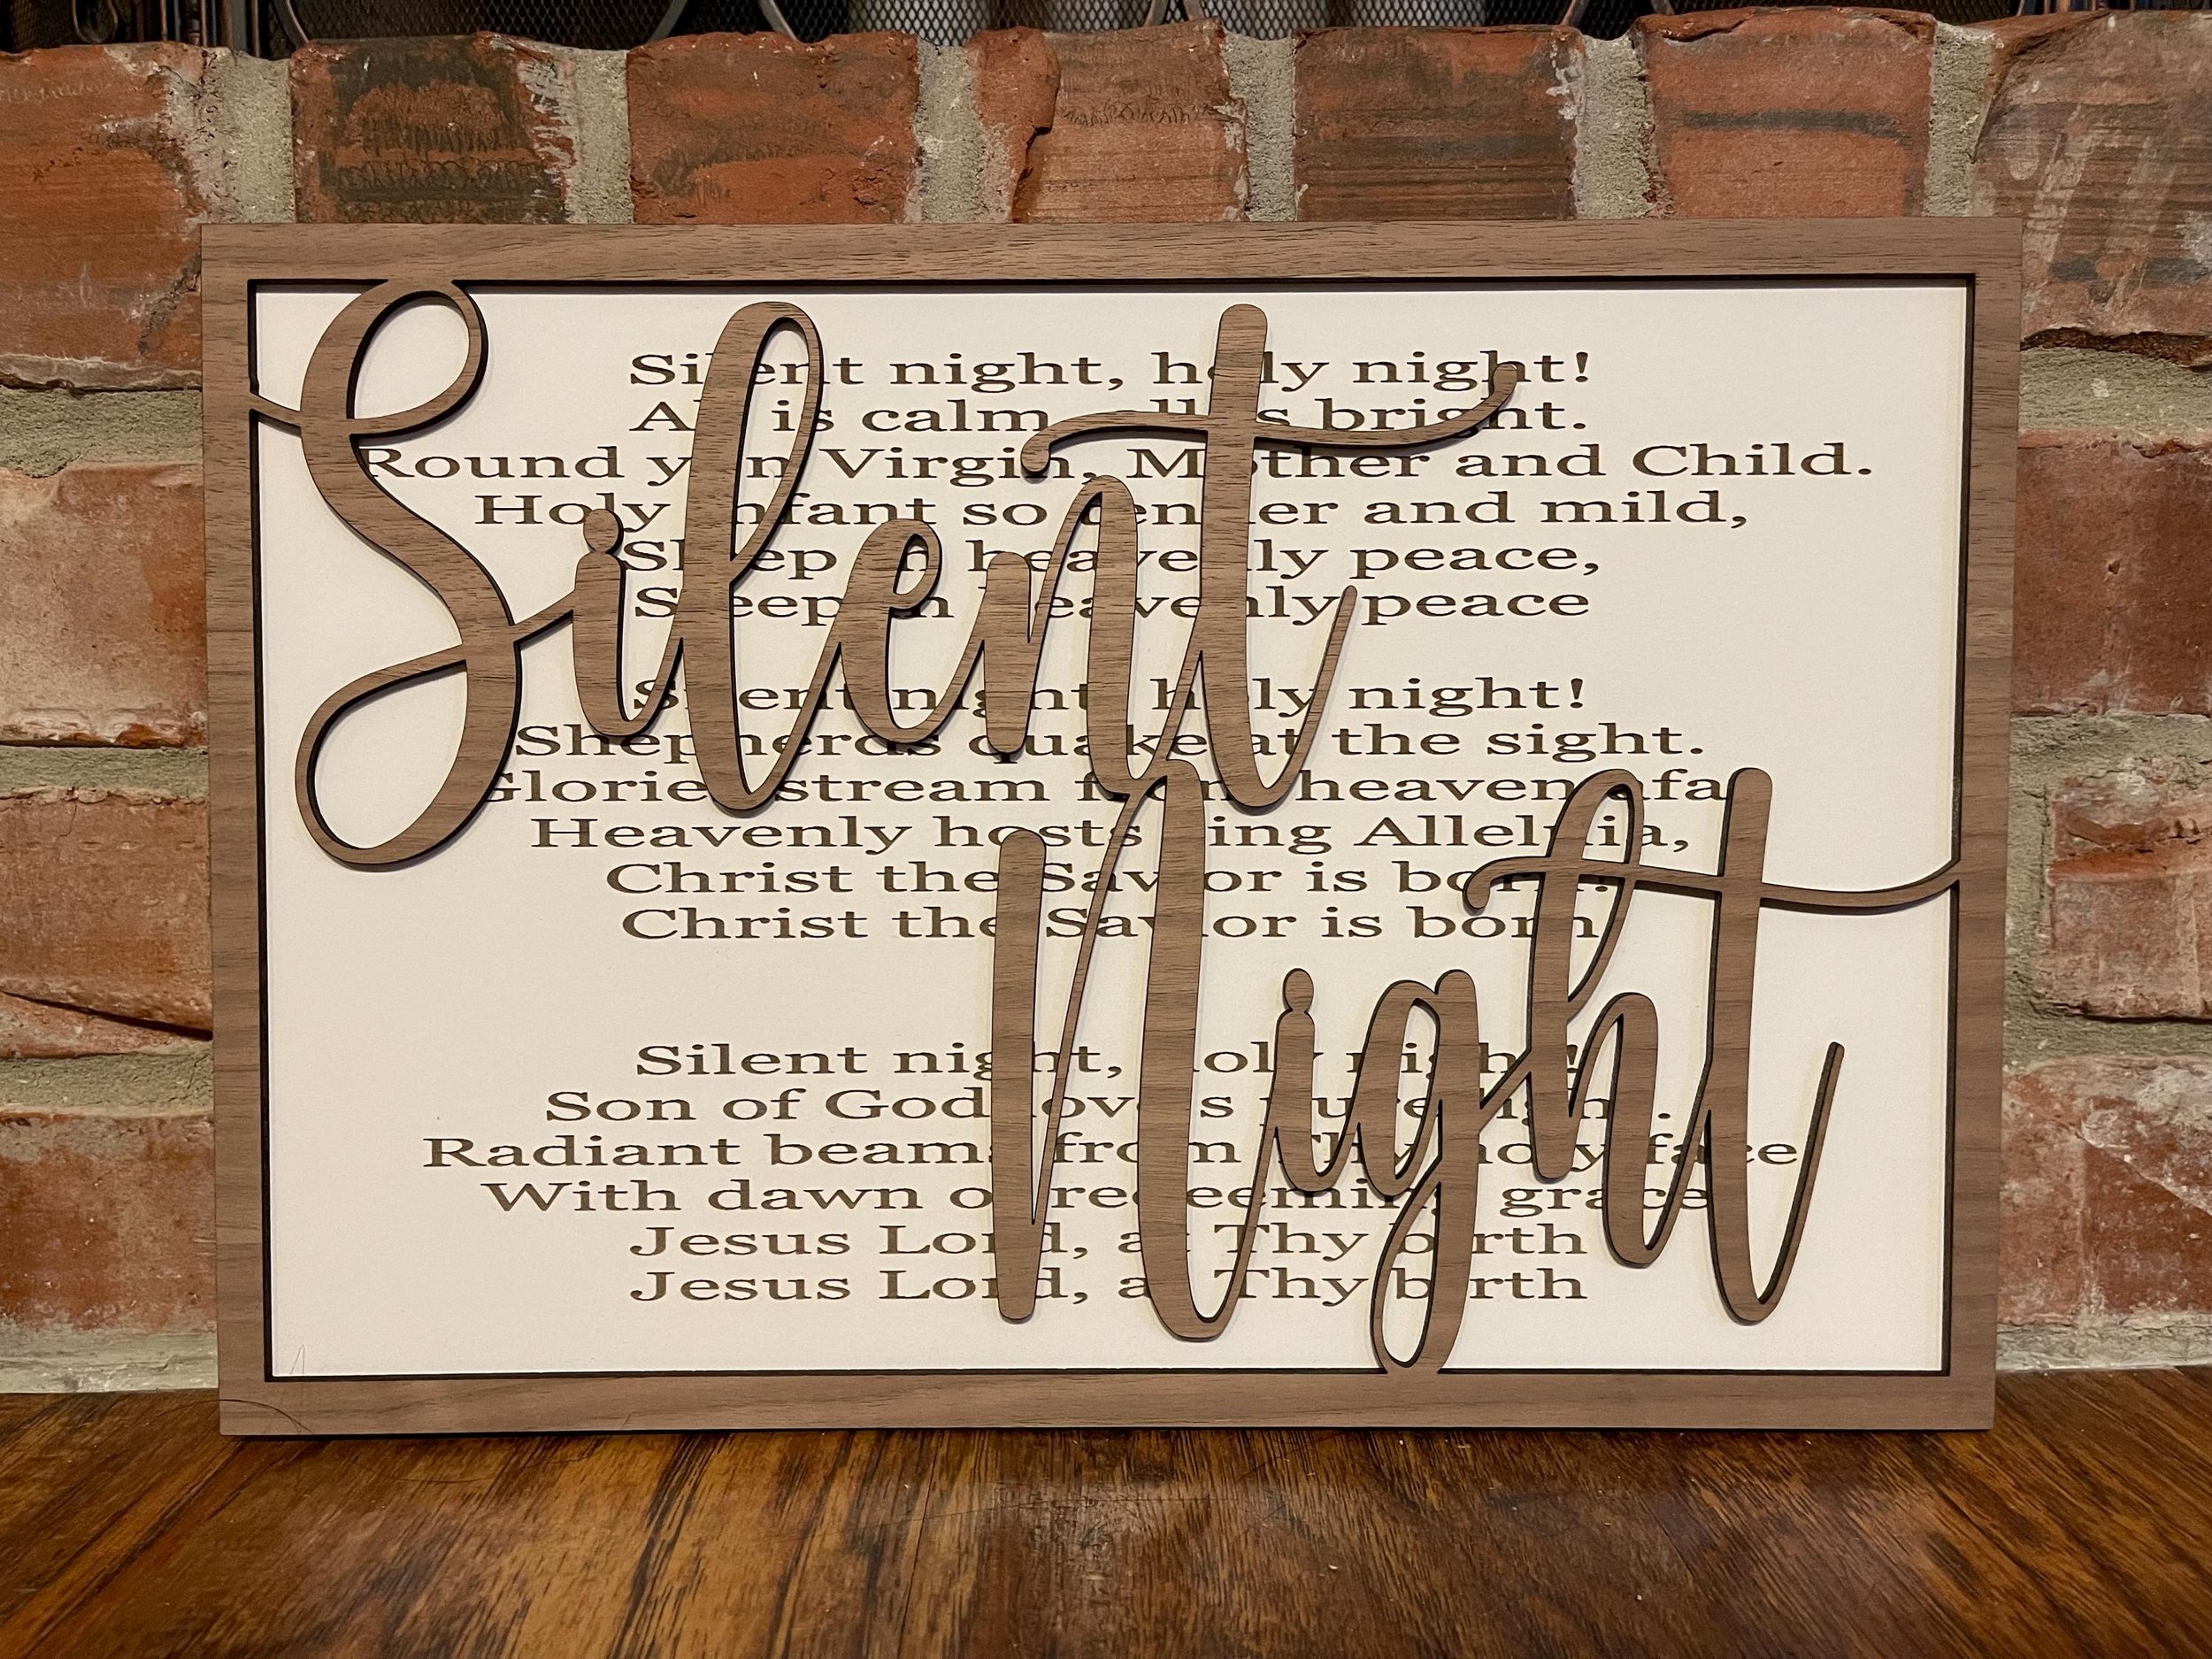 Silent
Night
Silent night, holy night!
All is calm, all is bright.
Round yon Virgin, Mother and Child.
Holy infant so tender and mild,
Sleep in heavenly peace,
Sleep in heavenly peace
Silent night, holy night!
Shepherds quake at the sight.
Glories stream from heaven afar
Heavenly hosts sing Alleluia,
Christ the Savior is born!
Christ the Savior is born
Silent night, holy night!
Son of God love's pure light.
Radiant beams from Thy holy face
With dawn of redeeming grace
Jesus Lord, at Thy birth
Jesus Lord, at Thy birth